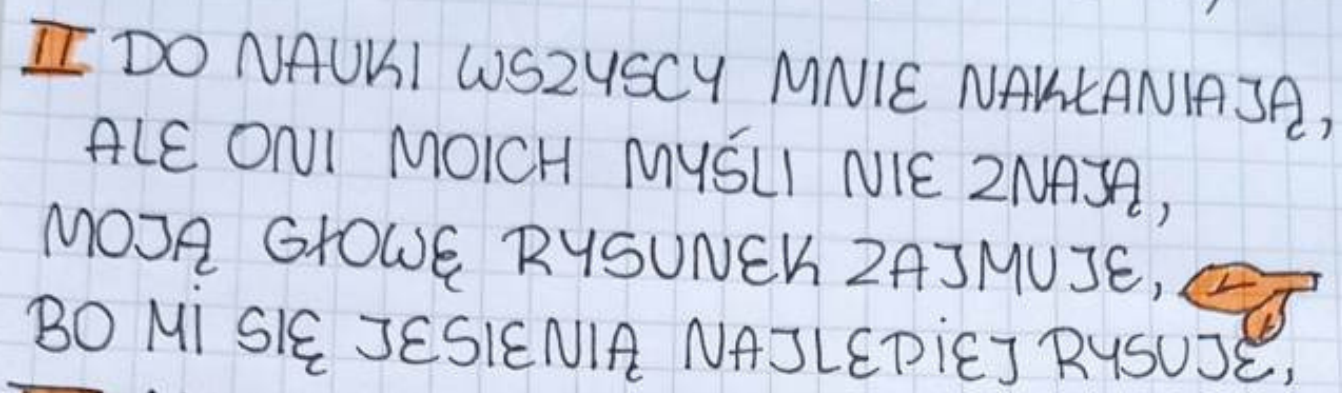 II DO NAUKI WSZYSCY MNIE NAKŁANIAJĄ,
ALE ONI MOICH MYŚLI NIE ZNAJĄ,
MOJĄ GŁOWĘ RYSUNEK ZAJMUJE,
BO MI SIĘ JESIENIĄ NAJLEPIEJ RYSUJE,